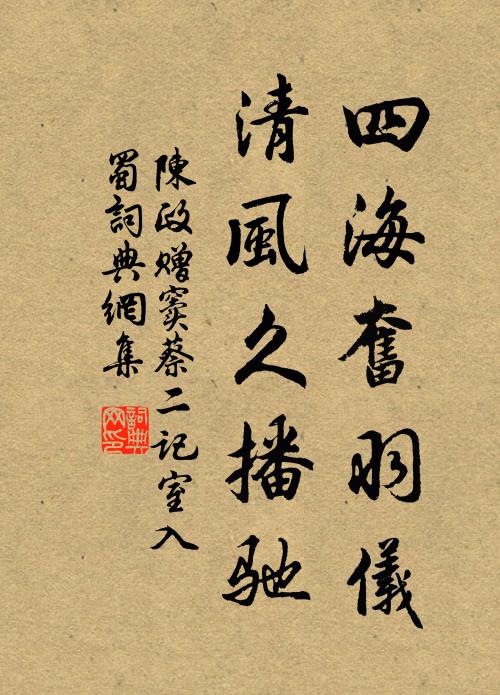 四海奮羽儀
清風久播馳
陳政贈竇蔡二記室入
蜀詞典網集
詞典网印